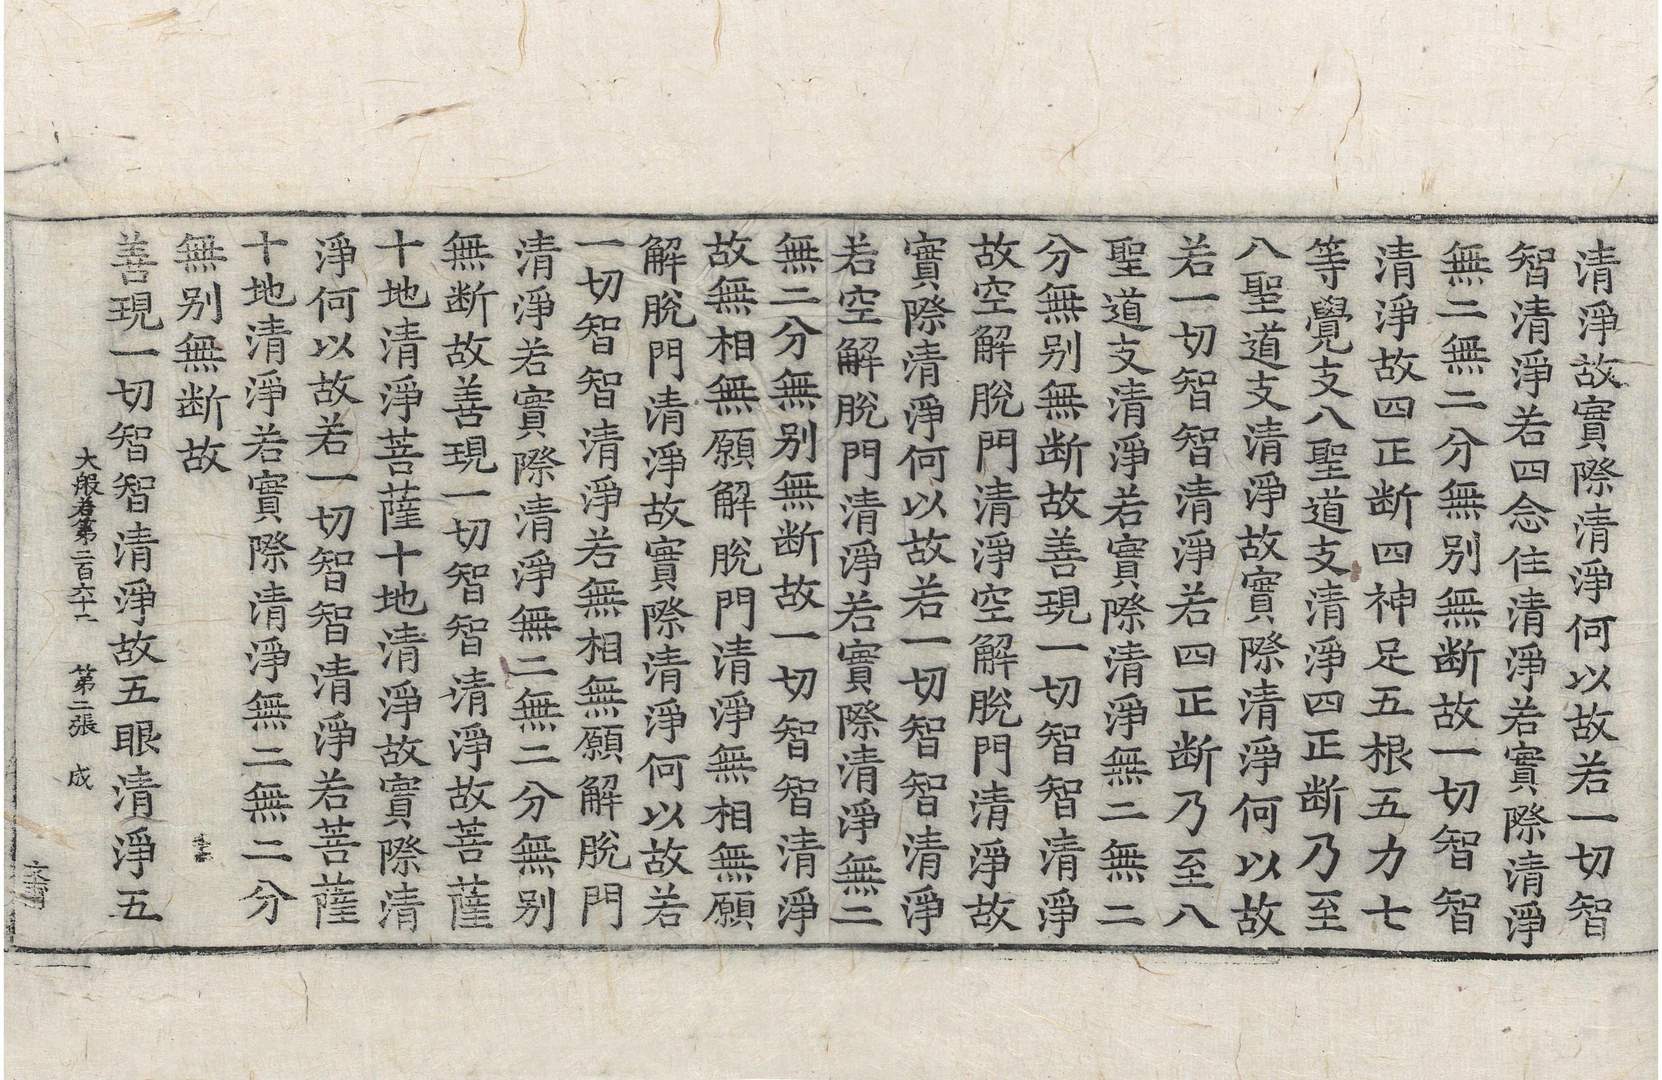 清淨故實際清淨何以故若一切智
智清淨若四念住清淨若實際清淨
無二無二分無別無断故一切智智
清淨故四正断四神足五根五力七
等覺支八聖道支清淨四正断乃至
八聖道支清淨故實際清淨何以故
若一切智智清淨若四正断乃至八
聖道支清淨若實際清淨無二無二
分無別無断故善現一切智智清淨
故空解脫門清淨空解脫門清淨故
實際清淨何以故若一切智智清淨
若空解脫門清淨若實際清淨無二
無二分無別無断故一切智智清淨
故無相無願解脫門清淨無相無願
解脫門清淨故實際清淨何以故若
一切智智清淨若無相無願解脫門
清淨若實際清淨無二無二分無別
無断故善現一切智智清淨故菩薩
十地清淨菩薩十地清淨故實際清
淨何以故若一切智智清淨若菩薩
十地清淨若實際清淨無二無二分
無別無断故
善現一切智智清淨故五眼清淨五
大般若第二百六十二 第二張